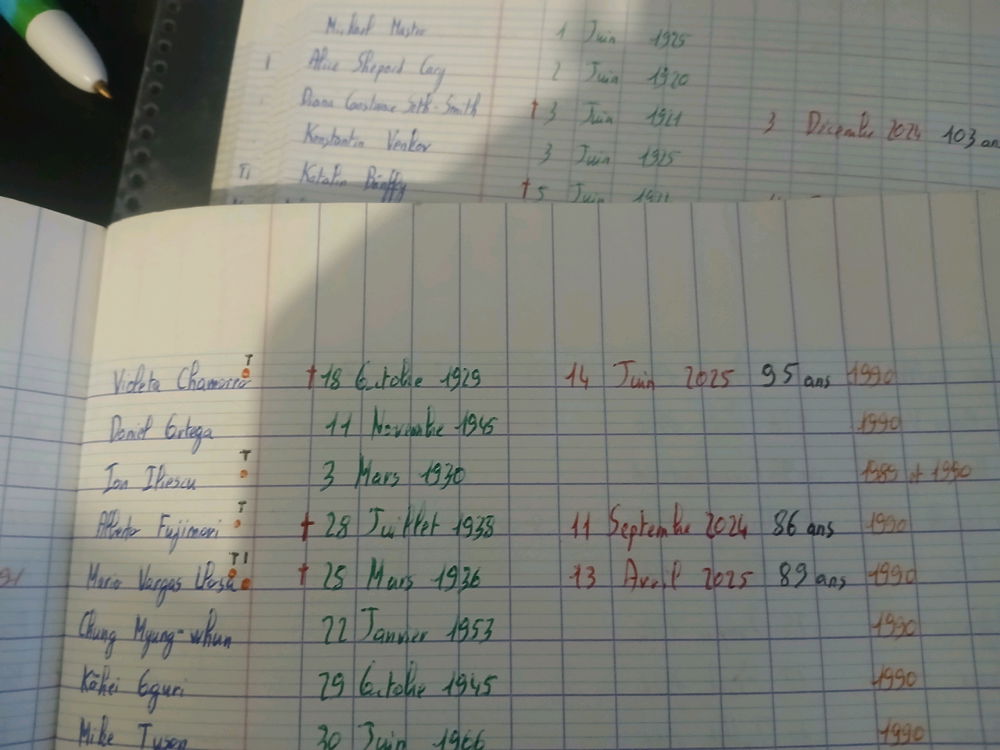 1 Juin 1925
Alice Shepard Cary 2 Juin 1920
Diana Constance Seth-Smith † 3 Juin 1921 3 Décembre 2024 103 ans
Konstantin Venkov 3 Juin 1925
TI Katalin Bánffy † 5 Juin
T
Violeta Chamorro † 18 Octobre 1929 14 Juin 2025 95 ans 1990
Daniel Ortega 11 Novembre 1945 1990
T
Ion Iliescu 3 Mars 1930 1989 et 1990
T
Alberto Fujimori † 28 Juillet 1938 11 Septembre 2024 86 ans 1990
TI
91 Mario Vargas Llosa † 28 Mars 1936 13 Avril 2025 89 ans 1990
Chung Myung-whun 22 Janvier 1953 1990
Kōhei Oguri 29 Octobre 1945 1990
Mike Tyson 30 Juin 1966 1990